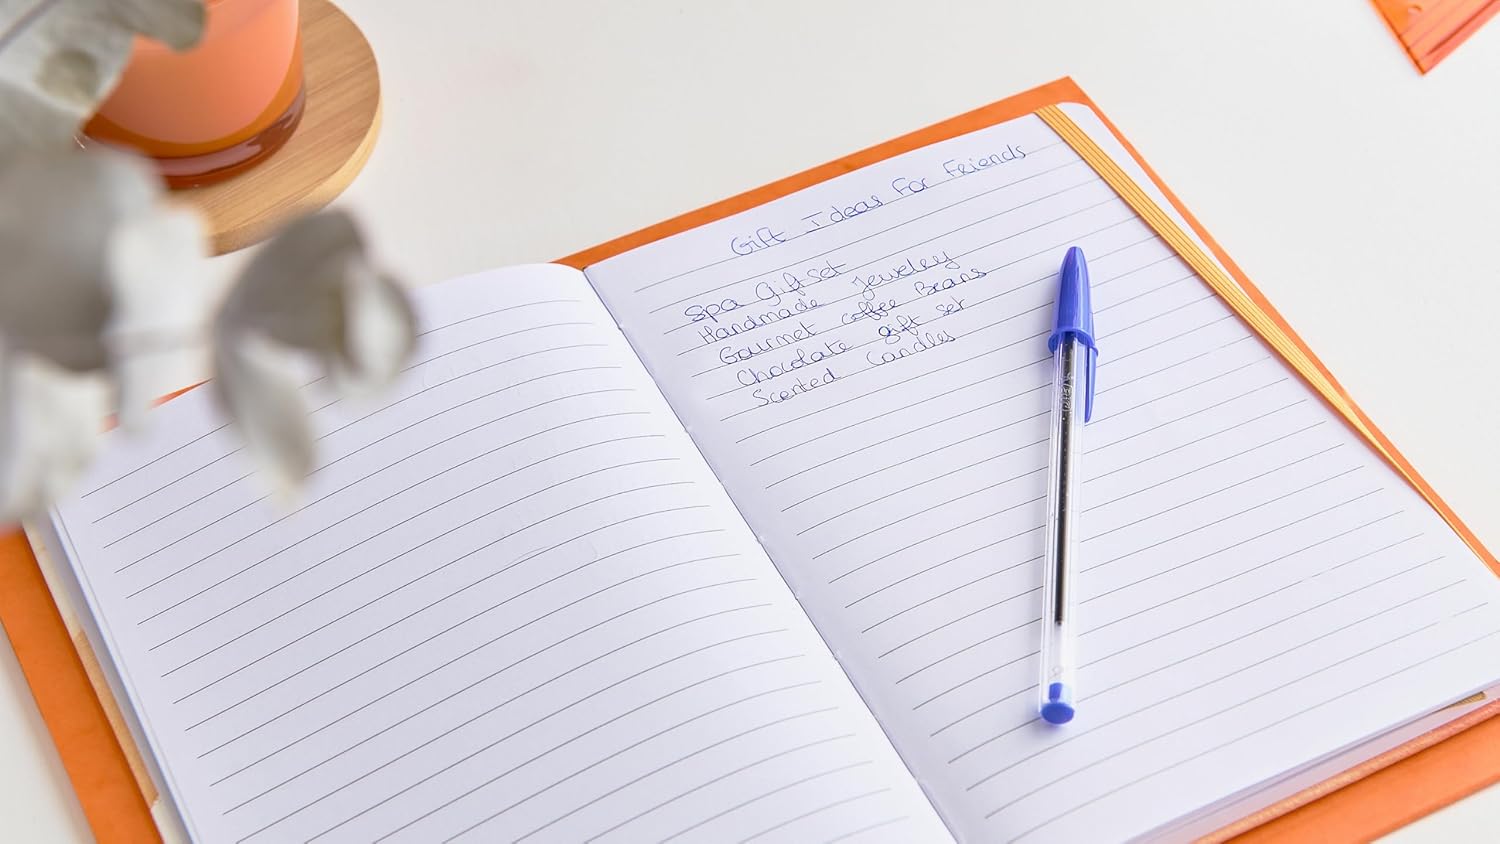 Gift Ideas For Friends
Spa Gift set
Handmade Jewelry
Gourmet coffee Beans
Chocolate gift set
Scented Candles